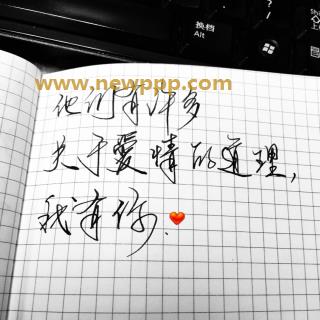 Shift
换档
Alt
www.newppp.com
他们有许多
关于爱情的道理，
我有你.